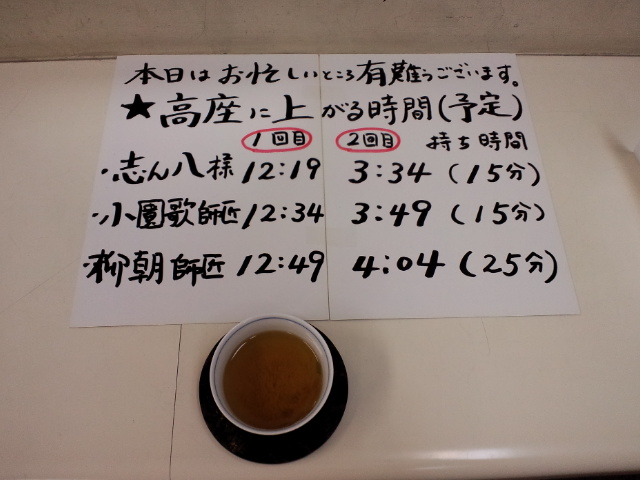 本日はお忙しいところ有難うございます。
★高座に上がる時間(予定)
1回目 2回目 持ち時間
・志ん八様 12:19 3:34 (15分)
・小園歌師匠 12:34 3:49 (15分)
・柳朝師匠 12:49 4:04 (25分)